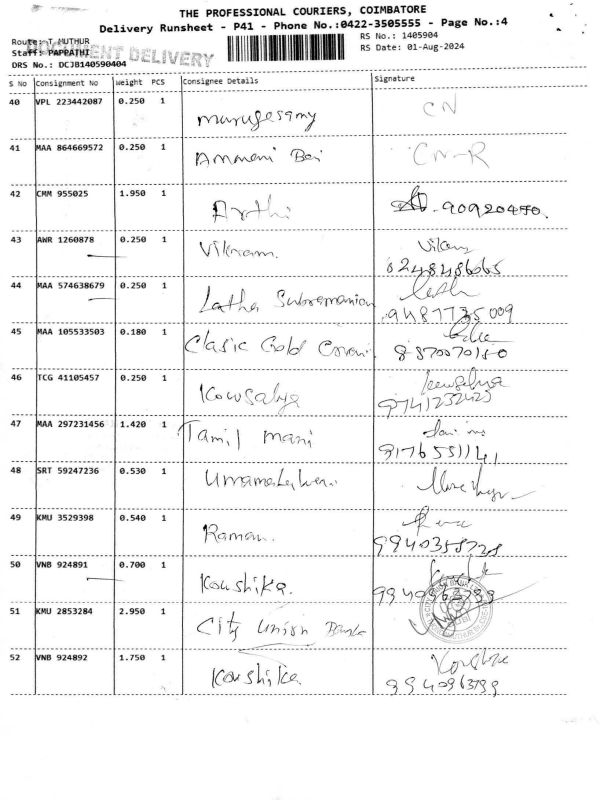 THE PROFESSIONAL COURIERS, COIMBATORE
Delivery Runsheet - P41 - Phone No.:0422-3505555 - Page No.:4
Route: T.MUTHUR RS No.: 1405904
DOCUMENT DELIVERY
Staff: PAPPATHI RS Date: 01-Aug-2024
DRS No.: DCJB140590404
S No Consignment No Weight PCS Consignee Details Signature
40 VPL 223442087 0.250 1 Murugesamy CN
41 MAA 864669572 0.250 1 Ammani Bai CN-R
42 CMM 955025 1.950 1 Arthi
43 AWR 1260878 0.250 1 Vikram.
44 MAA 574638679 0.250 1 Latha Subramanian
9487735009
45 MAA 105533503 0.180 1 Clasic Gold
8870070150
46 TCG 41105457 0.250 1 Kowsalya Kowsalya
9741232423
47 MAA 297231456 1.420 1 Tamil mani
9176551141
48 SRT 59247236 0.530 1 Umamaheshwari
49 KMU 3529398 0.540 1 Raman.
9940358728
50 VNB 924891 0.700 1 Koushika.
9940963799
51 KMU 2853284 2.950 1 City Union Bank
52 VNB 924892 1.750 1 Koushika Koushika
9940963799